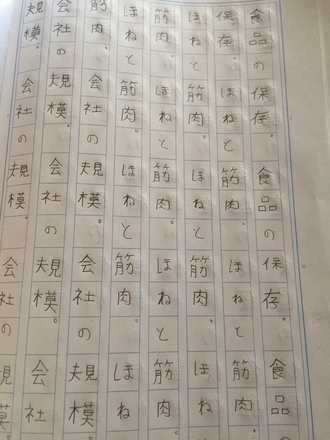 食品の保存。食品の保存。食品
保存。ほねと筋肉。ほねと筋肉。
ほねと筋肉。ほねと筋肉。ほね
筋肉。ほねと筋肉。ほねと筋肉
ほねと筋肉。ほねと筋肉。ほね
筋肉。会社の規模。会社の規模
会社の規模。会社の規模。会社
規模。会社の規模。会社の規模